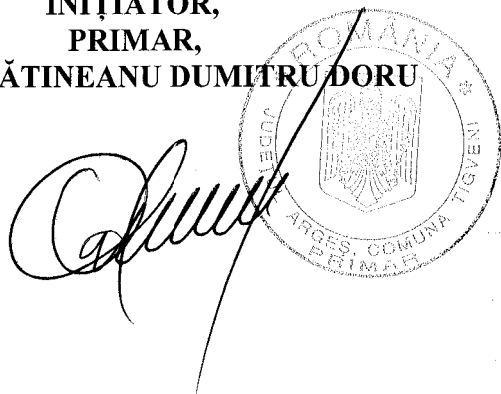 INIȚIATOR,
PRIMAR,
ĂTINEANU DUMITRU DORU
ROMÂNIA *
JUDEȚ
ARGEȘ, COMUNA TIGVENI
PRIMAR